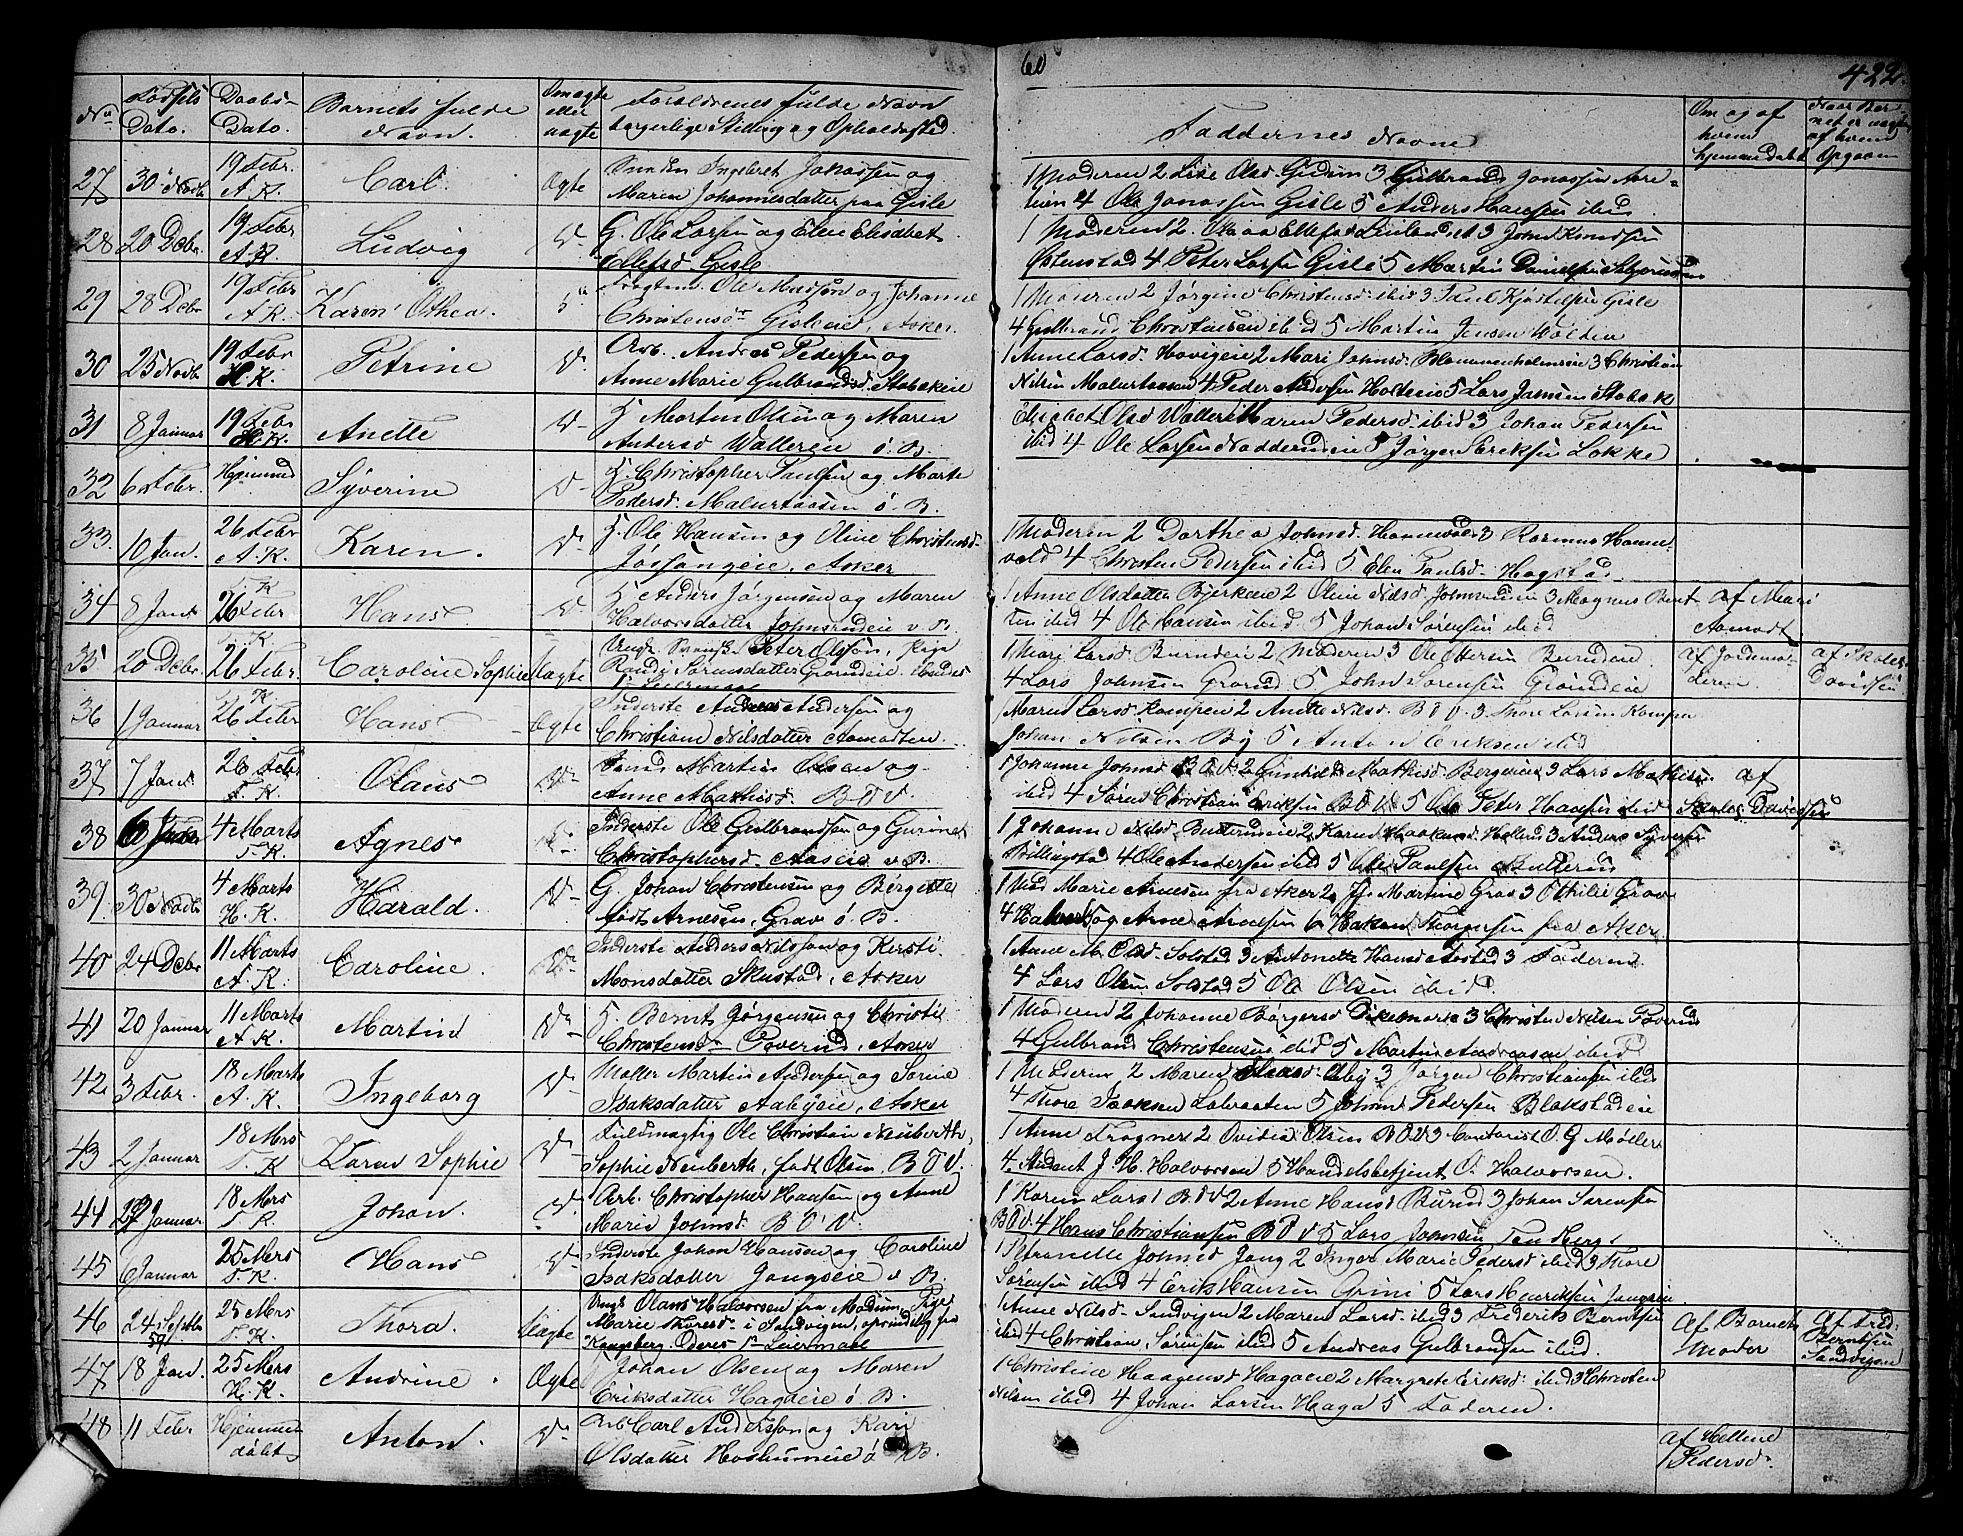 60
422.
No
Fødsels Dato.
Daabs- Dato.
Barnets fulde Navn.
Om ægte eller uægte
Forældrenes fulde Navn borgerlige Stilling og Opholdssted.
Faddernes Navne
Om og af hvem hjemmedøbt
Naar Barnet er uægte af hvem Opgaven
27 30 Novbr 19 Febr A. K. Carl Ægte Ingebret Jakobsen og
Maren Johannesdatter paa Gisle
1 Moderen 2 Lise Olsd Gidem 3 Gulbrand Jonassen
4 Ole Jonassen Gisle 5 Anders Hansen ibid
28 20 Dcbr 19 Febr A. K. Ludvig Do G. Ole Larsen og Elen Elisabet
Ellefsd. Gisle
1 Moderen 2. Ellefsd 3 John Knudsen
Østenstad 4 Peter Larsen Gisle 5 Martin Danielsen
29 28 Dcbr 19 Febr A. K. Karen Othea. Ole Madsen og Johanne
Christensdr Gisleeie, Asker.
1 Moderen 2 Jørgine Christensd ibid 3 Paul Kjøstelsen Gisle
4 Gulbrand Christensen ibid 5 Martin Jensen Volden
30 25 Novbr 19 Febr H. K. Petrine Do Arb. Andreas Pedersen og
Anne Marie Gulbrandsd. Stabækeie
1 Anne Larsd. Høvigeie 2 Mari Johnsd. Blommenholmseie 3 Christian
Nilsen Malurtaasen 4 Peder Andersen Holdeie 5 Lars Jansen Stabæk
31 8 Januar 19 Febr H. K. Anette Do Morten Olsen og Maren
Andersd Wallereie ø. B.
Elisabet Olsd Wallereie Maren Pedersd ibid 3 Johan Pedersen
ibid 4 Ole Larsen Nadderudeie 5 Jørgen Eriksen Løkke
32 6 Febr. Hjemmed Syverine Do Christopher Paulsen og Marte
Pedersd. Malurtaasen ø. B.
33. 10 Jan. 26 Febr A. K. Karen. Do Ole Hansen og Oline Christensd.
Jøssongeie, Asker
1 Moderen 2 Dorthea Johnsd. 3 Rasmus
vold 4 Christen Pedersen ibid 5 Elen Paulsd. Hagstad
34 8 Jan T. K 26 Febr Hans Do Anders Jørgensen og Maren
Halvorsdatter Johnsrudeie v. B.
1 Anne Olsdatter Bjerkeeie 2 Oline Nilsd. Johnsrudeie 3 Magnus Bent
sen ibid 4 Ole Hansen ibid. 5 Johan Sørensen ibid
af Mari Aamodt
35 20 Dcbr T. K. 26 Febr. Caroline Sophie Uægte Ungk. Svensk. Peter Olson, Pige
Randi Sørensdatter Grøndeie. Hendes
1ste Leiermaal
1 Mari Larsd. Burudeie 2 Moderen 3 Ole Ottersen Burudeie
4 Lars Johnsen Grønd 5 John Sørensen Grøndeie
af Jordemoderen
af Skoleh. Davidsen
36 1 Januar T. K. 26 Febr Hans Ægte Inderste Andreas Andersen og
Christiane Nilsdatter Aamodten.
1 Maren Larsd. Kampen 2 Anette Nilsd. B Ø V. 3 Thore Larsen Kampen
Johan Nilsen By 5 Anton Eriksen ibid
37 7 Jan 26 Febr T. K. Olaus Do Martin Olsen og
Anne Mathisd. B Ø V.
1 Johanne Johnsd B Ø V 2 Gunhild Mathisd. Bergeeie 3 Lars Mathisen
ibid 4 Søren Christian Eriksen B Ø V 5 Ole Peter Hansen ibid
af Skoleh. Davidsen
38 6 Januar 4 Marts T. K. Agnes Do Inderste Ole Gulbrandsen og Gurine
Christophersd. Aaseie v B.
1 Johanne Nilsd. Butterudeie 2 Karen Haakensd. Hellerud 3 Anders Syversen
Billingstad 4 Ole Andersen ibid 5 Ole Paulsen Butterud
39. 30 Novbr 4 Marts H. K. Harald. Do G. Johan Christensen og Birgette
født Arnesen, Grav ø. B.
1 Mad Marie Arnesen fra Aker 2 Pige Martine Grav 3 Othilie Grav
4 Halvor og Arne Arnesen 6 Hakan Thorgersen fra Aker
40 24 Dcbr 11 Marts A. K. Caroline. Do Inderste Anders Nilsson og Kersti
Monsdatter Skustad, Asker
1 Anne M. Olsd. Solstad 2 Antonette Hansd Aastad 3 Faderen.
4 Lars Olsen Solstad 5 Ole Olsen ibid.
41 20 Januar 11 Marts A K. Martin Do Bernt Jørgensen og Christie
Christensd. Poverud, Asker
1 Moderen 2 Johanne Børgersd Eikemark 3 Christen Nilsen Poverud
4 Gulbrand Christensen ibid 5 Martin Andreassen ibid
42. 3 Febr. 18 Marts A. K. Ingeborg Do Møller Martin Andersen og Sørine
Isaksdatter Aabyeie, Asker
1 Moderen 2 Maren Aaby 3 Jørgen Christiansen ibid
4 Thore Isaksen 5 Johan Pedersen Blakstadeie
43 2 Januar 18 Mrs T. K Karen Sophie Do Fuldmægtig Ole Christian Neuberth,
Sophie Neuberth, født Olsen, B Ø V.
1 Anne Frogner 2 Ovidia Olsen B Ø V 3 Contorist O. G. Møller
4. Student J. H. Halvorsen 5 Handelsbetjent O. Halvorsen.
44 Januar 18 Mrs T. K. Johan. Do Arb. Christopher Hansen og Anne
Marie Johnsd. B Ø V.
1 Karen Larsd B Ø V 2 Anne Hansd Burud 3 Johan Sørensen
B Ø V. 4 Hans Christiansen B Ø V 5 Lars Johnsen Tandberg
45 6 Januar 25 Mrs T. K. Hans Do Inderste Johan Hansen og Caroline
Isaksdatter Jongseie v B.
1 Petronelle Johnsd Jong 2 Inger Marie Pedersd ibid 3 Thore
Sørensen ibid 4 Erik Hansen Grini 5 Lars Henriksen Jongseie
46 24 Septbr 59 25 Mrs T. K. Thora. Uægte Ungk Olaus Halvorsen fra Modum, Pige
Marie Thoresd. i Sandvigen, oprindelig fra
Kongsberg. Deres 1ste Leiermaal
1 Anne Nilsd. Sandvigen 2 Maren Larsd. ibid 3 Frederik Berntsen
ibid 4 Christian Sørensen ibid 5 Andreas Gulbrandsen ibid.
af Barnets Moder
af Fred. Berntsen Sandvigen
47 18 Jan. 25 Mrs H. K. Andrine. Ægte Johan Olsen og Maren
Eriksdatter Hagaeie ø. B.
1 Christine Haagensd Hagaeie 2 Margrete Eriksd. ibid 3 Christen
Nilsen ibid 4 Johan Larsen Haga 5 Faderen.
48 11 Febr Hjemmedøbt Anton. Do Arb Carl Andersson og Kari
Olsdatter Hoslumeie ø B.
af Helline Pedersd.